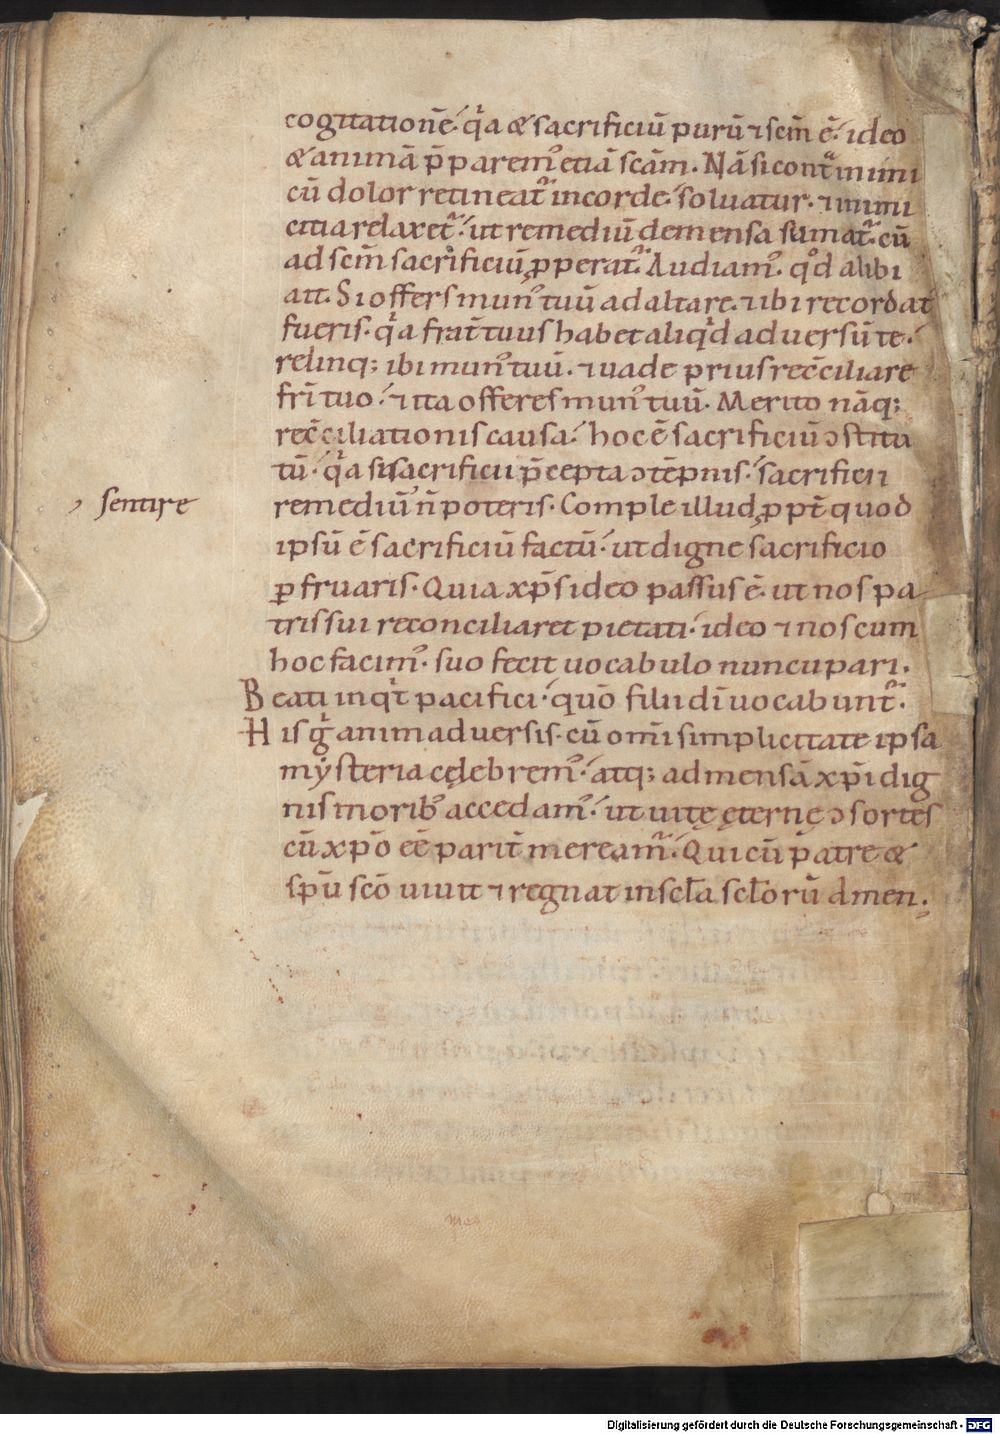 cogitationē· q̇a & sacrificiū purū ⁊ scm̄ ē· ideo
& animā p̄paremꝰ etiā scām· Nā si cont̄ inimi
cū dolor retineat᷑ in corde· soluatur· ⁊ inimi
citia relaxet᷑· ut remediū de mensa sumat᷑· cū
ad scm̄ sacrificiū ꝓperat᷑· Audiamꝰ qd̊ alibi
ait· Si offers munꝰ tuū ad altare· ⁊ ibi recordatꝰ
fueris· q̇a frat̄ tuus habet aliq̇d aduersū te·
relinq; ibi munꝰ tuū· ⁊ uade prius rec̄ciliare
fr̄i tuo· ⁊ ita offeres munꝰ tuū· Merito nāq;
rec̄ciliationis causa· hoc ē sacrificiū ↄstitu
tū· q̇a si sacrificii p̄cepta ↄtēpnis· sacrificii
, sentire
remediū n̄ poteris· Comple illud ꝓpt̄ quod
ipsū ē sacrificiū factū· ut digne sacrificio
ꝑfruaris· Quia xp̄s ideo passus ē· ut nos pa
tris sui reconciliaret pietati· ideo ⁊ nos cum
hoc facimꝰ· suo fecit uocabulo nuncupari·
Beati inqt̄ pacifici· quō filii dī uocabunt᷑·
His g̊ animaduersis· cū omī simplicitate ipsa
mysteria celębremꝰ· atq; ad mensā xp̄i dig
nis moribꝰ accedamꝰ· ut uitę ęternę ↄsortes
cū xp̄o eē parit̄ mereamꝰ· Qui cū patre &
sp̄u scō uiuit ⁊ regnat in scl̄a scl̄orū amen·